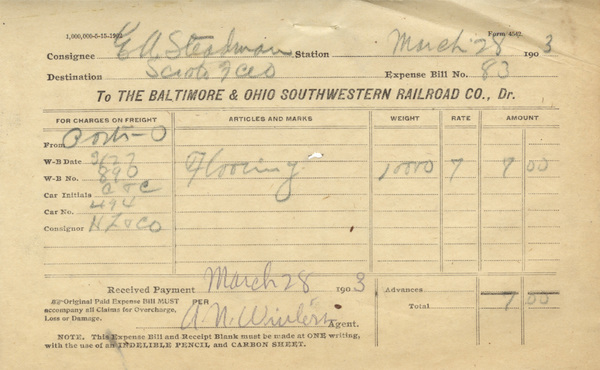 1,000,000-6-15-1902 Form 4542.
Consignee E A Steadman Station March 28 1903
Destination Scioto Expense Bill No. 83
To THE BALTIMORE & OHIO SOUTHWESTERN RAILROAD CO., Dr.
FOR CHARGES ON FREIGHT ARTICLES AND MARKS WEIGHT RATE AMOUNT
From Ports-O
W-B Date 3/27 Flooring 10000 7 7 00
W-B No. 890
Car Initials
Car No. 494
Consignor
Received Payment March 28 1903 Advances
Original Paid Expense Bill MUST PER Total 7 00
accompany all Claims for Overcharge,
Loss or Damage. Agent.
NOTE. This Expense Bill and Receipt Blank must be made at ONE writing,
with the use of an INDELIBLE PENCIL and CARBON SHEET.